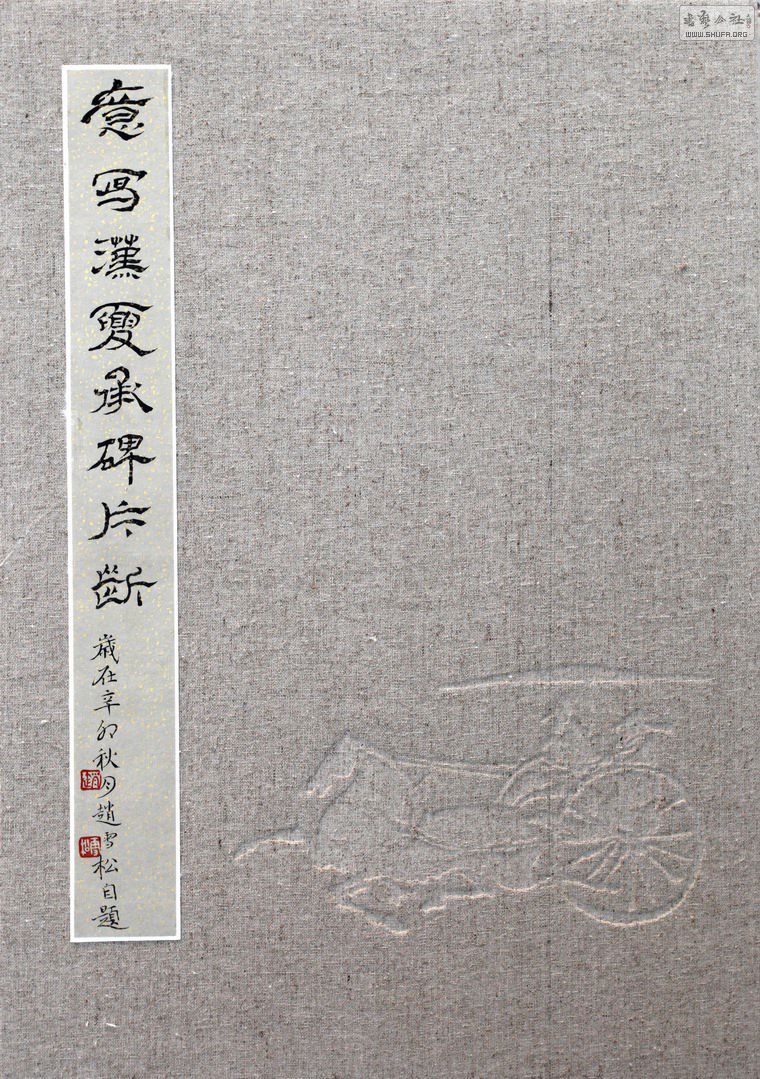 意寫漢夏承碑片斷
歲在辛卯秋月趙雪松自題
书艺公社
WWW.SHUFA.ORG